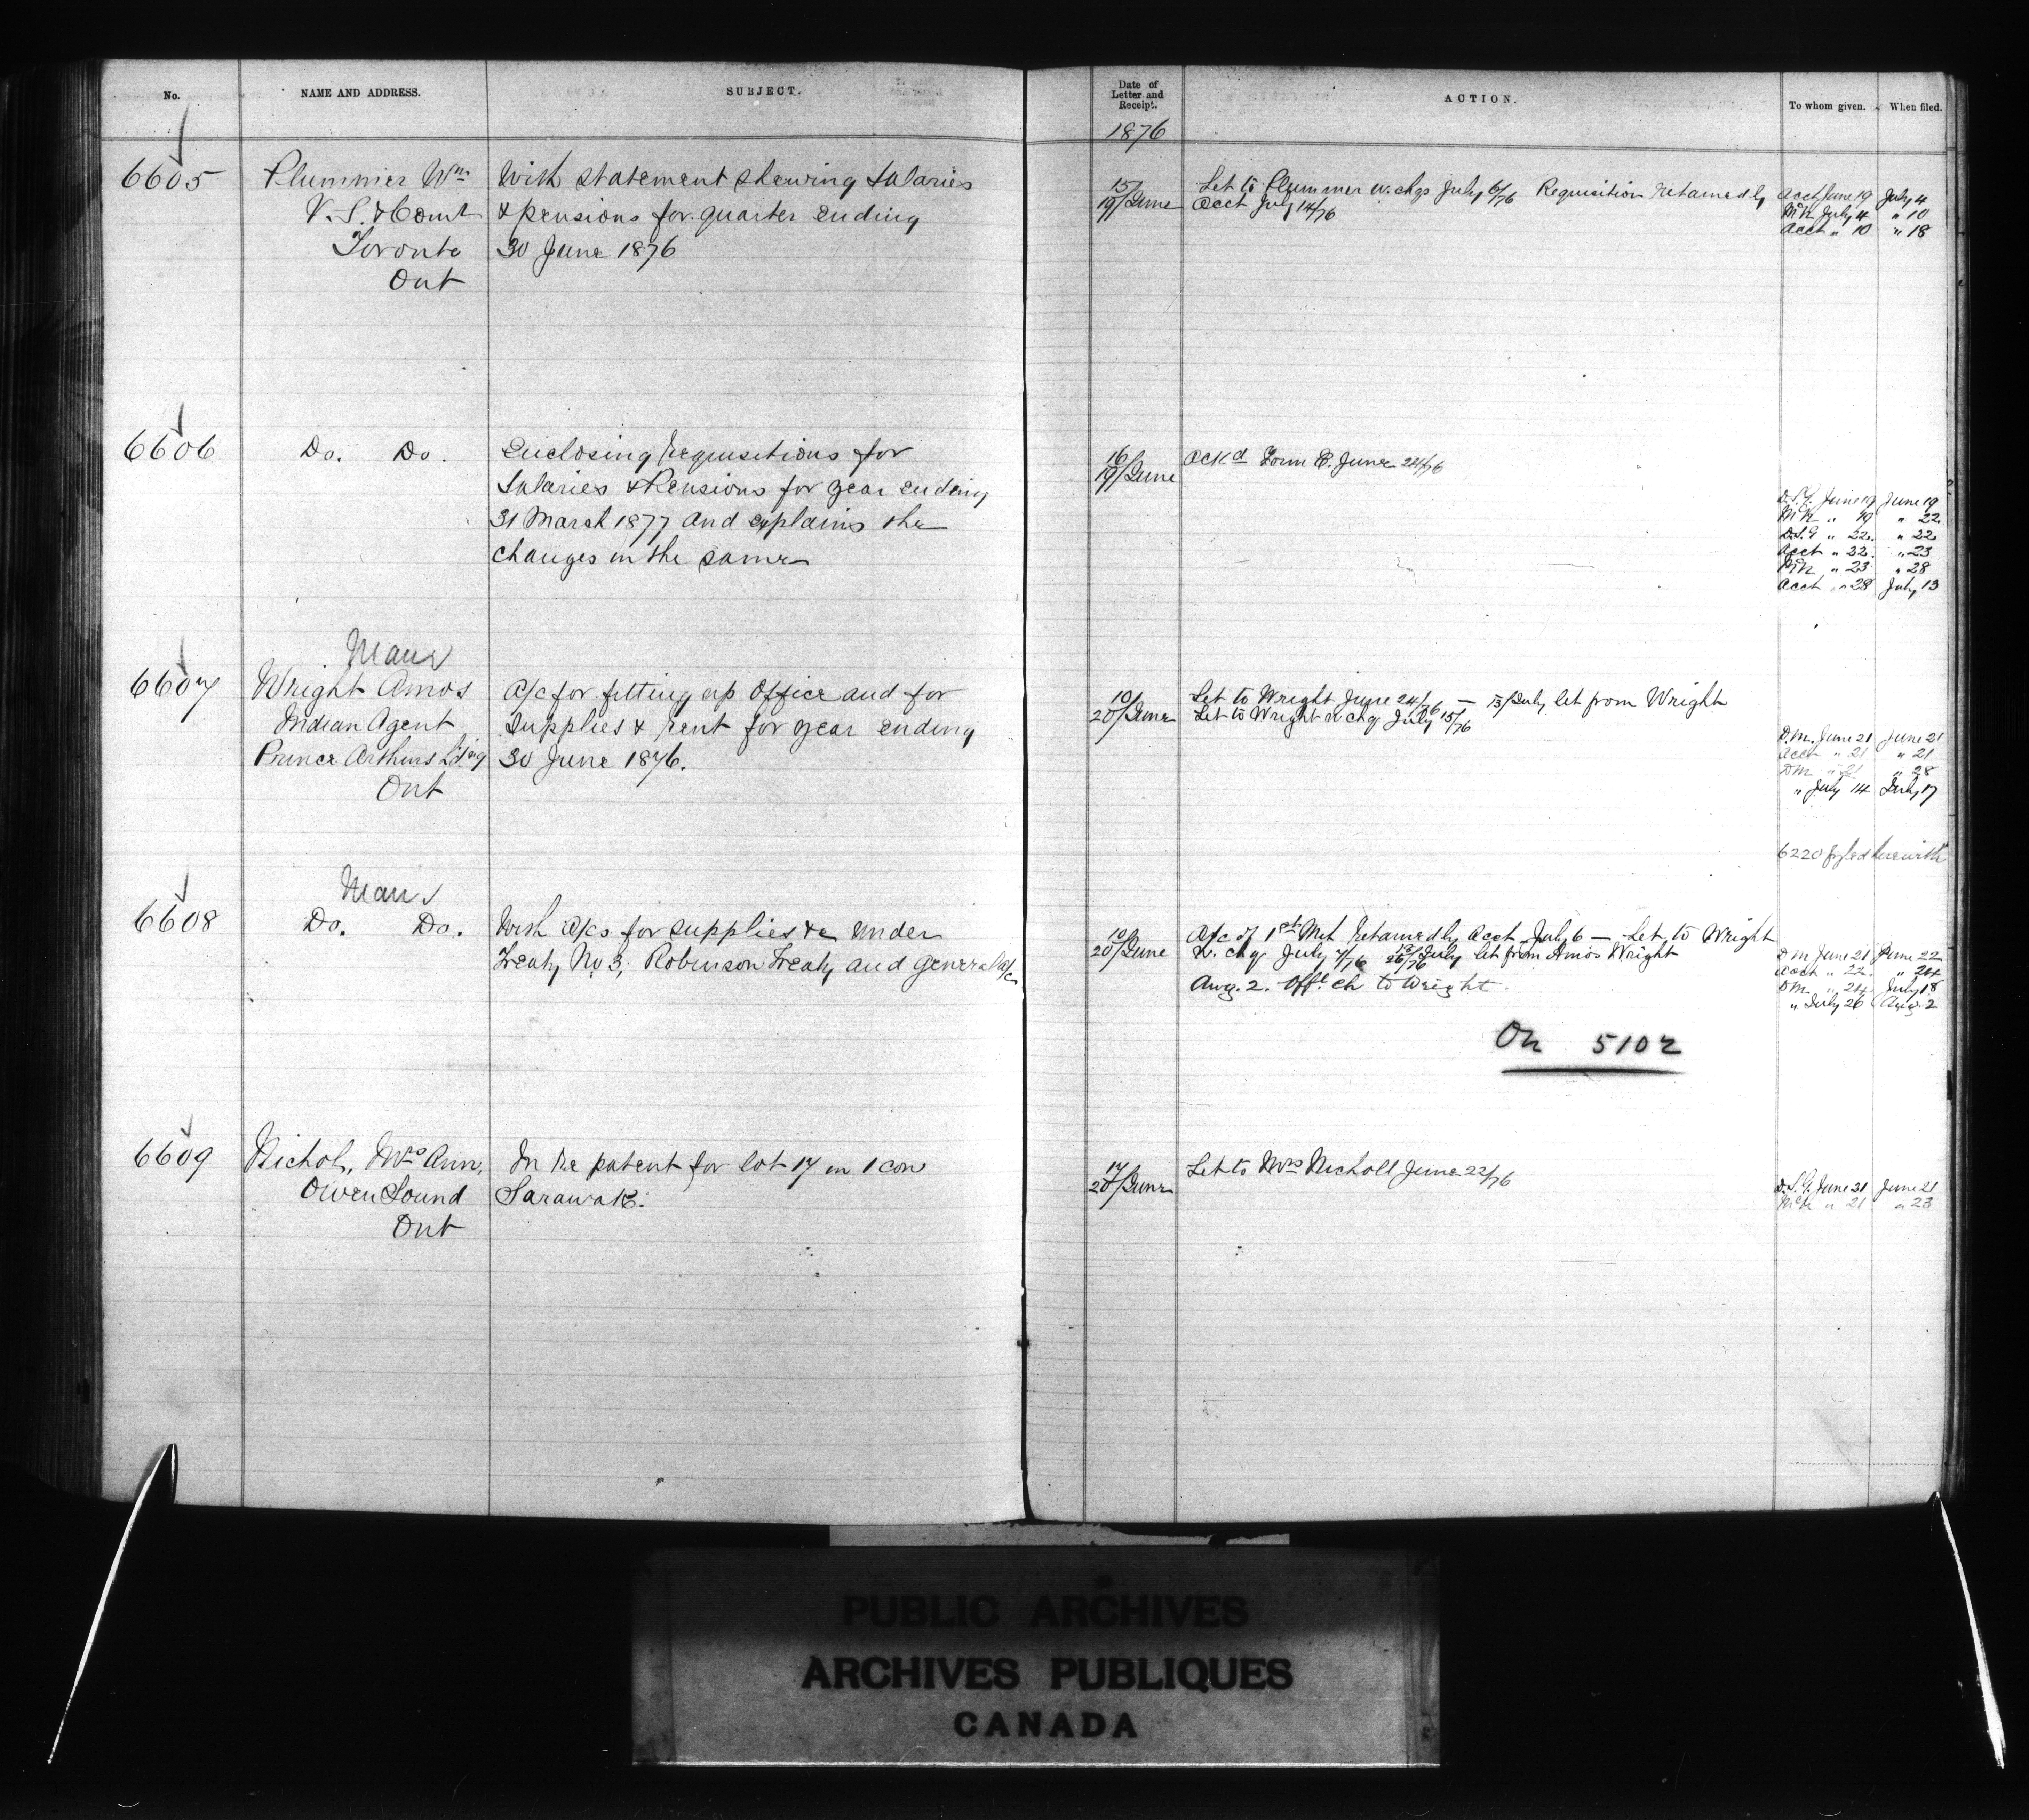 No. NAME AND ADDRESS. SUBJECT. Date of Letter and Receipt. ACTION. To whom given. When filed.
1876
6605 Plummer Wm With statement shewing Salaries
V. S. & Comr & pensions for quarter ending
Toronto 30 June 1876
Ont
15/19/June Let to Plummer w. chqs July 6/76 Requisition retained by
Acct July 14/76
Acct June 19 July 4
McN July 4 " 10
Acct " 10 " 18
6606 Do. Do. Enclosing requisitions for
Salaries & Pensions for year ending
31 March 1877 and explains the
changes in the same
16/19/June Ackd Form E. June 22/76
D.S.G. June 19 June 19
McN " 19 " 22
D.S.G " 22 " 22
Acct " 22 " 23
McN " 23 " 28
Acct " 28 July 13
Man
6607 Wright Amos A/c for fitting up Office and for
Indian Agent Supplies & rent for year ending
Prince Arthurs Ld'ng 30 June 1876.
Ont
10/20/June Let to Wright June 24/76 — 13/July let from Wright
Let to Wright w chq July 15/76
D.M. June 21 June 21
Acct " 21 " 21
DM " 21 " 28
" July 14 July 17
6220 fyled herewith
Man
6608 Do. Do. With a/cs for supplies &c under
Treaty No 3, Robinson Treaty and general a/c
10/20/June A/c of retained by Acct July 6 — Let to Wright
W. chq July 7/76 July let from Amos Wright
Aug. 2. Offl ch to Wright.
DM June 21 June 22
Acct " 22 " 24
DM " 24 July 18
" July 26 Aug. 2
On 5102
6609 Nichol, Mrs Ann, In re patent for lot 17 in 1 con
Owen Sound Sarawak.
Ont
17/20/June Let to Mrs Nicholl June 22/76
D.S.G. June 21 June 21
McN " 21 " 23
PUBLIC ARCHIVES
ARCHIVES PUBLIQUES
CANADA